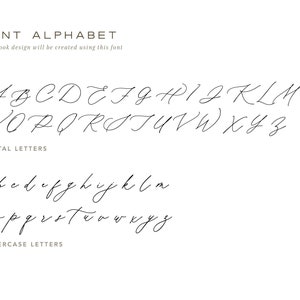 NT ALPHABET
ook design will be created using this font
A B C D E F G H I J K L M
O P Q R S T U V W X Y Z
TAL LETTERS
b c d e f g h i j k l m
o p q r s t u v w x y z
ERCASE LETTERS